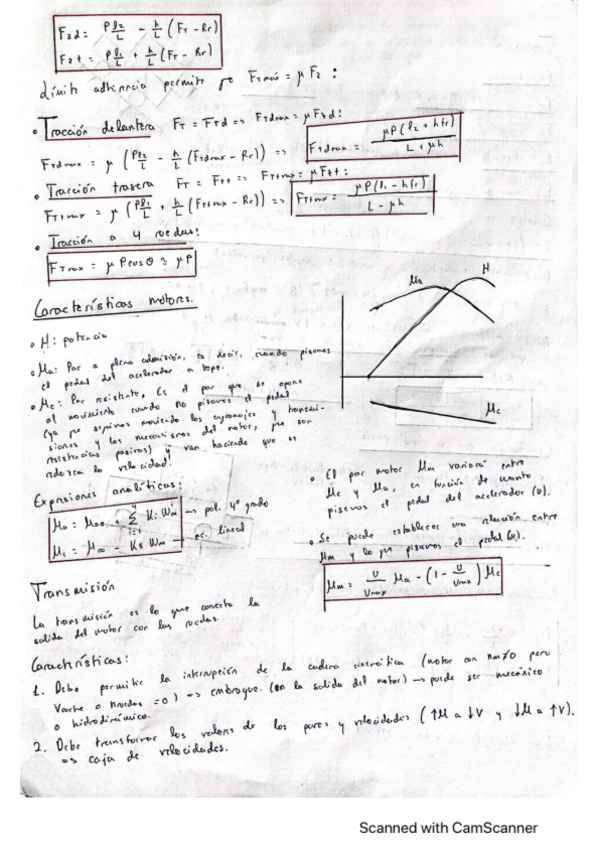 Fzd = Pl2/L - h/L (FT - Rr)
Fzt = Pl1/L + h/L (FT - Rr)
Límite adherencia permite que FTmáx = μ Fz :
• Tracción delantera FT = FTd => FTdmax = μ Fzd:
FTdmax = μ (Pl2/L - h/L (FTdmax - Rr)) => FTdmax = μP(l2 + hfr) / L + μh
• Tracción trasera FT = FTt => FTtmax = μ Fzt:
FTtmax = μ (Pl1/L + h/L (FTtmax - Rr)) => FTtmax = μP(l1 - hfr) / L - μh
• Tracción a 4 ruedas:
FTmax = μ P cos θ ≈ μP
Características motores.
Ma H
Mc
• H: potencia
• Ma: Par a plena admisión, es decir, cuando pisamos
el pedal del acelerador a tope.
• Mc: Par resistente, Es el par que se opone
al movimiento cuando no pisamos el pedal
(ya que seguimos moviendo los engranajes y transmi-
siones y los mecanismos del motor, que son
resistencias pasivas) y van haciendo que se
reduzca la velocidad.
Expresiones analíticas:
Ma = Mao + Σ Ki Wm → pol. 4º grado
Mc = Mco - K5 Wm → ec. lineal
• El par motor Mm variará entre
Mc y Ma, en función de cuanto
pisemos el pedal del acelerador (u).
• Se puede establecer una relación entre
Mm y lo que pisamos el pedal (u).
Mm = u/umax Ma - (1 - u/umax) Mc
Transmisión
La transmisión es lo que conecta la
salida del motor con las ruedas.
Características:
1. Debe permitir la interrupción de la cadena cinemática (motor con nm≠0 pero
Vcoche o nruedas =0) => embrague. (en la salida del motor) → puede ser mecánico
o hidrodinámico.
2. Debe transformar los valores de los pares y velocidades (↑M a ↓V y ↓M a ↑V).
=> caja de velocidades.
Scanned with CamScanner